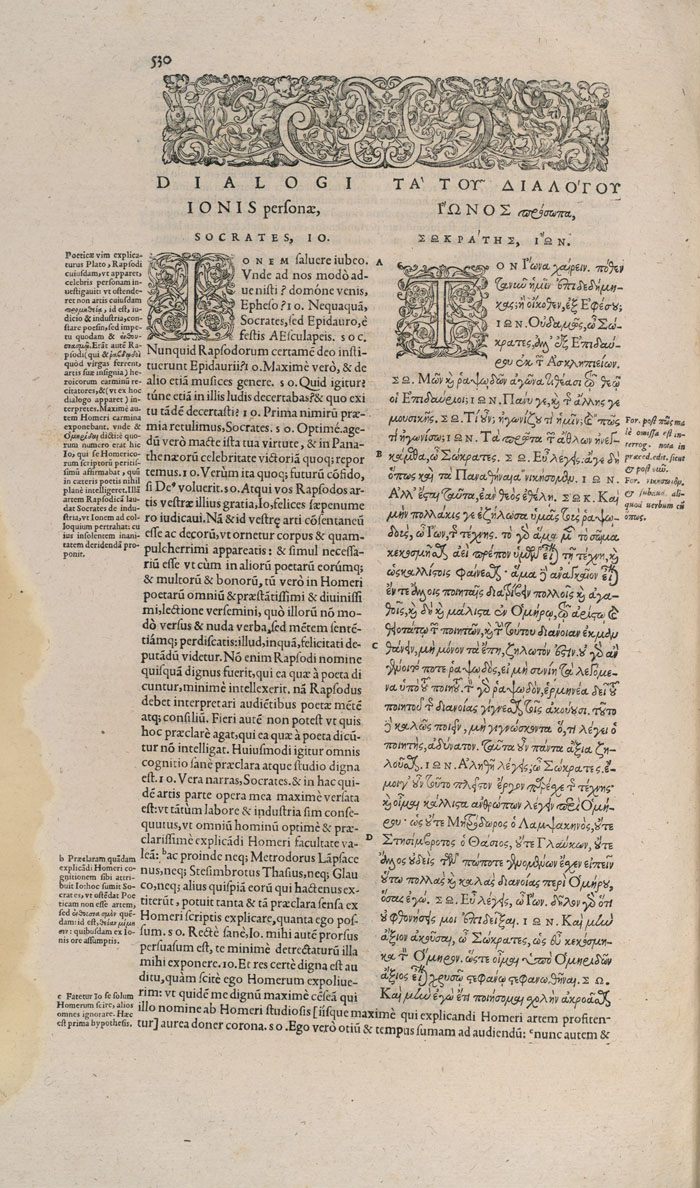 530
DIALOGI
IONIS personæ,
SOCRATES, IO.
Poeticæ vim explica-
turus Plato, Rapsodi
cuiusdam, vt apparet,
celebris personam in-
uestigauit: vt ostende-
ret non artis cuiusdam
id est, iu-
dicio & industria, con-
stare poësin, sed impe-
tu quodam &
Erãt autē Ra-
psodi( qui &
quòd virgas ferrent,
artis suæ insignia) he-
roicorum carminū re-
citatores, &( vt ex hoc
dialogo apparet ) in-
terpretes. Maximè au-
tem Homeri carmina
exponebant. vnde &
dicti: quo-
rum numero erat hic
Io, qui se Homerico-
rum scriptorū peritis-
simū affirmabat, qui
in cæteris poetis nihil
planè intelligeret. Illā
artem Rapsodicā lau-
dat Socrates de indu-
stria, vt Ionem ad col-
loquium pertrahat: cu
ius insolenem inani-
tatem deridendã pro-
ponit.
IONEM saluere iubeo.
Vnde ad nos modò ad-
uenisti ? domóne venis,
Epheso? IO. Nequaquã,
Socrates, sed Epidauro, è
festis AEsculapeis. SOC.
Nunquid Rapsodorum certamē deo insti-
tuerunt Epidaurii? IO. Maximè verò, & de
alio etiā musices genere. SO. Quid igitur?
túne etiā in illis ludis decertabas? & quo exi
tu tãdē decertasti? IO. Prima nimirū præ-
mia retulimus, Socrates. SO. Optimè. age-
dū verò macte ista tua virtute, & in Pana-
thenæorū celebritate victoriã quoq; repor
temus. IO. Verùm ita quoq; futurū cõfido,
si De⁹ voluerit. SO. Atqui vos Rapsodos ar-
tis vestræ illius gratia, Io, felices sæpenume
ro iudicaui. Nā & id vestrę arti cõsentaneū
esse ac decorū, vt ornetur corpus & quam-
pulcherrimi appareatis : & simul necessa-
riū esse vt cùm in aliorū poetarū eorūmq;
& multorū & bonorū, tū verò in Homeri
poetarum omniū & præstãtissimi & diuinissi
mi, lectione versemini, quò illorū nõ mo-
dò versus & nuda verba, sed mētem sentē-
tiámq; perdiscatis: illud, inquā, felicitati de-
putãdū videtur. Nõ enim Rapsodi nomine
quisquã dignus fuerit, qui ea quæ à poeta di
cuntur, minimè intellexerit. nã Rapsodus
debet interpretari audiētibus poetæ mētē
atq; consiliū. Fieri autē non potest vt quis
hoc præclarè agat, qui ea quæ à poeta dicū-
tur nõ intelligat. Huiusmodi igitur omnis
cognitio sanè præclara atque studio digna
est. IO. Vera narras, Socrates. & in hac qui-
dē artis parte opera mea maximè versata
est: vt tãtùm labore & industria sim conse-
quutus, vt omniū hominū optimè & præ-
clarissimè explicādi Homeri facultate va-
leã: ᵇac proinde neq; Metrodorus Lãpsace
nus, neq; Stesimbrotus Thasius, neq; Glau
co, neq; alius quispiã eorū qui hactenus ex-
titerūt , potuit tanta & tã præclara sensa ex
Homeri scriptis explicare, quanta ego pos-
sum. SO. Rectè sanè, Io. mihi autē prorsus
persuasum est, te minimè detrectaturū illa
mihi exponere. IO. Et res certè digna est au
ditu, quàm scitè ego Homerum expoliue-
rim: vt quidē me dignū maximè cēseã qui
illo nomine ab Homeri studiosis [iisque maximè qui explicandi Homeri artem profiten-
tur] aurea doner corona. SO. Ego verò otiū & tempus sumam ad audiendū: ᶜnunc autem &
b Præclaram quãdam
explicãdi Homeri co-
gnitionem sibi attri-
buit Io: hoc sumit So-
crates, vt ostēdat Poe-
ticam non esse artem,
sed quē-
dam: id est,
quibusdam ex Io-
nis ore assumptis.
c Fatetur Io se solum
Homerum scire, alios
omnes ignorare. Hæc
est prima hypothesis.
ΤΑ' ΤΟΥ͂ ΔΙΑΛΟ'ΓΟΥ
Ι῎ΩΝΟΣ πρόσωπα,
ΣΩΚΡΑ'ΤΗΣ, Ι῎ΩΝ.
A
ΤΟΝ Ἴωνα χαίρειν. πόθεν
τανῦν ἡμῖν ἐπιδεδήμη-
κας; ἢ οἴκοθεν, ἐξ Ἐφέσου;
ΙΩΝ. Οὐδαμῶς, ὦ Σώ-
κρατες, ἀλλ' ἐξ Ἐπιδαύ-
ρου ἐκ τῶν Ἀσκληπιείων.
ΣΩ. Μῶν καὶ ῥαψωδῶν ἀγῶνα τιθέασι τῷ θεῷ
οἱ Ἐπιδαύριοι; ΙΩΝ. Πάνυ γε, καὶ τῆς ἄλλης γε
μουσικῆς. ΣΩ. Τί οὖν; ἠγωνίζου τί ἡμῖν; καὶ πῶς
τὶ ἠγωνίσω; ΙΩΝ. Τὰ πρῶτα τῶν ἄθλων ἠνεγ-
B
κάμεθα, ὦ Σώκρατες. ΣΩ. Εὖ λέγεις. ἄγε δὴ
ὅπως καὶ τὰ Παναθήναια νικήσομεν. ΙΩΝ.
Ἀλλ' ἔσται ταῦτα, ἐὰν θεὸς ἐθέλῃ. ΣΩΚ. Καὶ
μὴν πολλάκις γε ἐζήλωσα ὑμᾶς τοὺς ῥαψω-
δοὺς, ὦ Ἴων, τῆς τέχνης. τὸ γὰρ ἅμα μὲν τὸ σῶμα
κεκοσμῆσθαι ἀεὶ πρέπον ὑμῶν εἶναι τῇ τέχνῃ, καὶ
ὡς καλλίστοις φαίνεσθαι· ἅμα δὲ ἀναγκαῖον εἶναι
ἔν τε ἄλλοις ποιηταῖς διατρίβειν πολλοῖς καὶ ἀγα-
θοῖς, καὶ δὴ καὶ μάλιστα ἐν Ὁμήρῳ, τῷ ἀρίστῳ καὶ
θειοτάτῳ τῶν ποιητῶν, καὶ τὴν τούτου διάνοιαν ἐκμαν-
C
θάνειν, μὴ μόνον τὰ ἔπη, ζηλωτόν ἐστιν. οὐ γὰρ ἂν
γένοιτό ποτε ῥαψωδὸς, εἰ μὴ συνίῃ τὰ λεγόμε-
να ὑπὸ τοῦ ποιητοῦ. τὸν γὰρ ῥαψωδὸν, ἑρμηνέα δεῖ τοῦ
ποιητοῦ τῆς διανοίας γίγνεσθαι τοῖς ἀκούουσι. τοῦτο
δὲ καλῶς ποιεῖν, μὴ γιγνώσκοντα ὅ, τι λέγει ὁ
ποιητής, ἀδύνατον. ταῦτα οὖν πάντα ἄξια ζη-
λοῦσθαι. ΙΩΝ. Ἀληθῆ λέγεις, ὦ Σώκρατες. ἐ-
μοὶ γοῦν τοῦτο πλεῖστον ἔργον παρέσχε τῆς τέχνης·
καὶ οἶμαι κάλλιστα ἀνθρώπων λέγειν περὶ Ὁμή-
ρου· ὡς οὔτε Μητρόδωρος ὁ Λαμψακηνὸς, οὔτε
D
Στησίμβροτος ὁ Θάσιος, οὔτε Γλαύκων, οὔτε
ἄλλος οὐδεὶς τῶν πώποτε γενομένων ἔσχεν εἰπεῖν
οὕτω πολλὰς καὶ καλὰς διανοίας περὶ Ὁμήρου,
ὅσας ἐγώ. ΣΩ. Εὖ λέγεις, ὦ Ἴων. δῆλον γὰρ ὅτι
οὐ φθονήσεις μοι ἐπιδεῖξαι. ΙΩΝ. Καὶ μὴν
ἄξιον ἀκοῦσαι, ὦ Σώκρατες, ὡς εὖ κεκόσμη-
κα τὸν Ὅμηρον. ὥστε οἶμαι ὑπὸ Ὁμηριδῶν
ἄξιος εἶναι χρυσῷ στεφάνῳ στεφανωθῆναι. ΣΩ.
Καὶ μὴν ἐγὼ ἔτι ποιήσομαι σχολὴν ἀκροᾶσθαι
For. post πῶς ma
lè omissa est in-
terrog. nota in
præced. edit. sicut
& post
For.
& subaud. ali-
quod verbum cū
ὅπως.